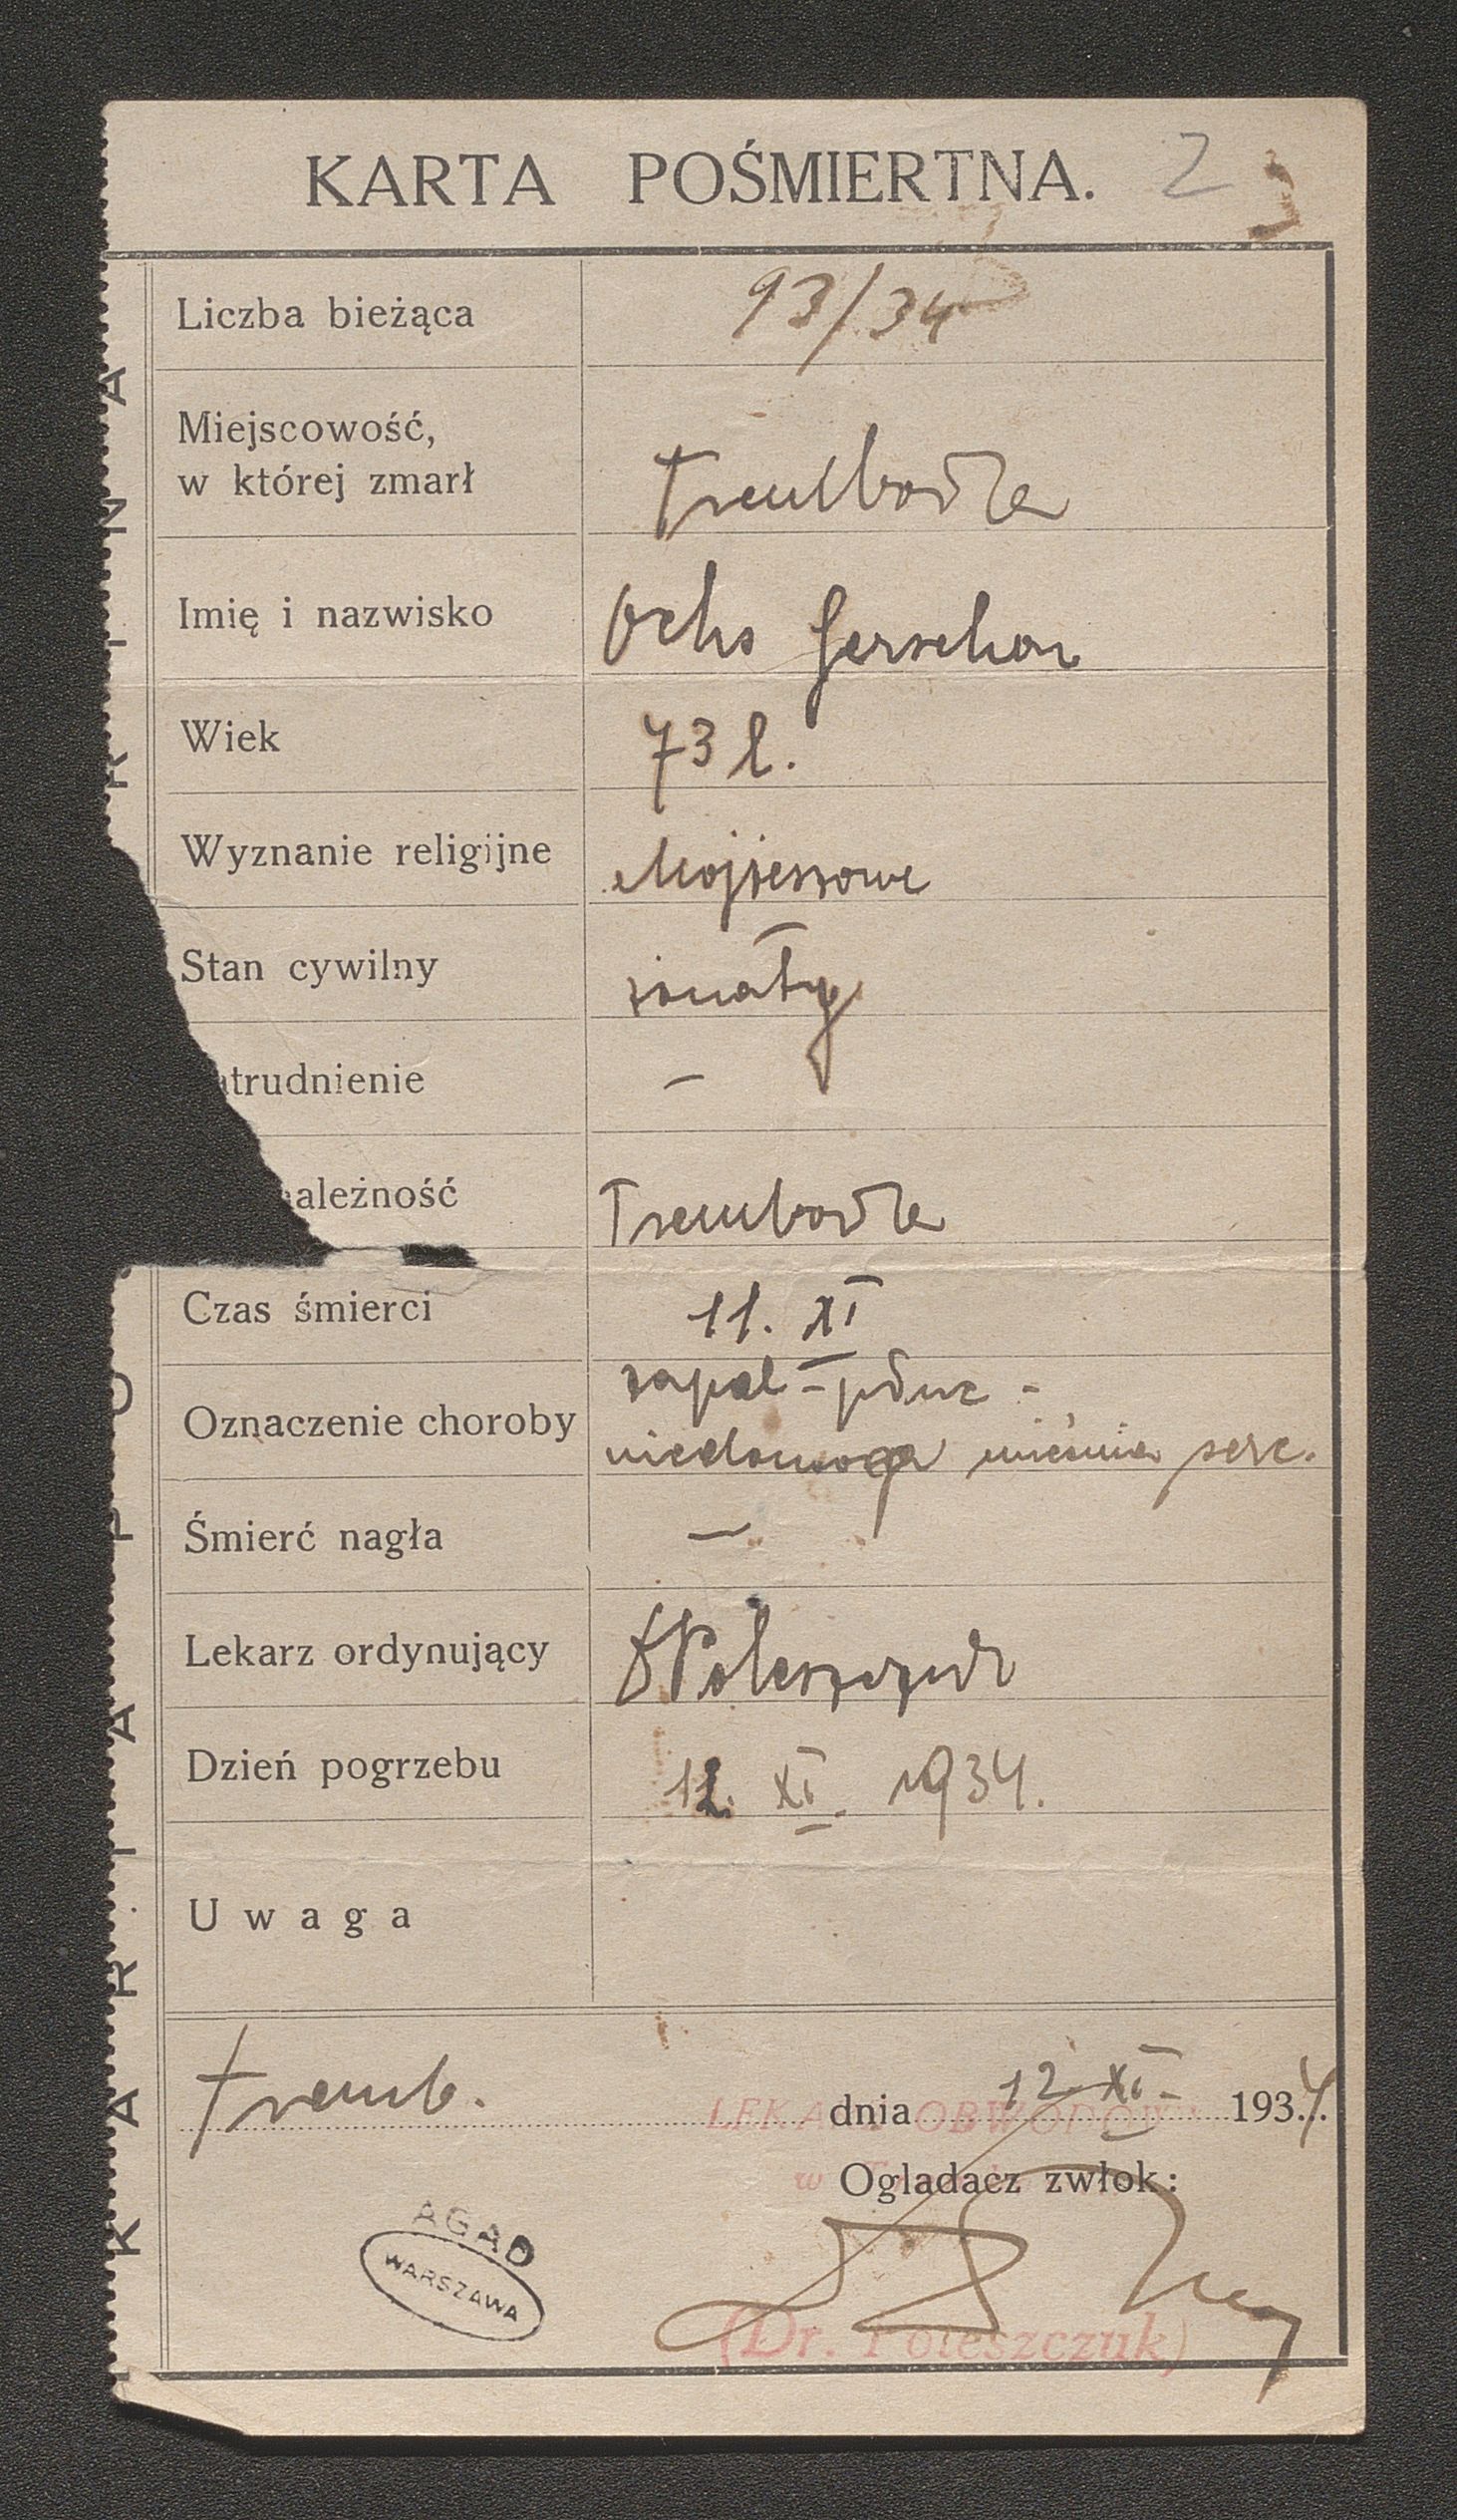 KARTA POŚMIERTNA. 2
Liczba bieżąca 93/34
Miejscowość,
w której zmarł Trembowla
Imię i nazwisko Ochs Gerschon
Wiek 73 l.
Wyznanie religijne Mojżeszowe
Stan cywilny żonaty
atrudnienie —
ależność Trembowla
Czas śmierci 11. XI
Oznaczenie choroby zapal - płuc -
niedomoga mięśnia serc.
Śmierć nagła —
Lekarz ordynujący Dr Poleszczuk
Dzień pogrzebu 12. XI. 1934.
Uwaga
Tremb. dnia 12. XI. 1934.
LEKARZ OBWODOWY
w
Oglądacz zwłok:
(Dr. Poleszczuk)
AGAD
WARSZAWA
KARTA PO RTNA